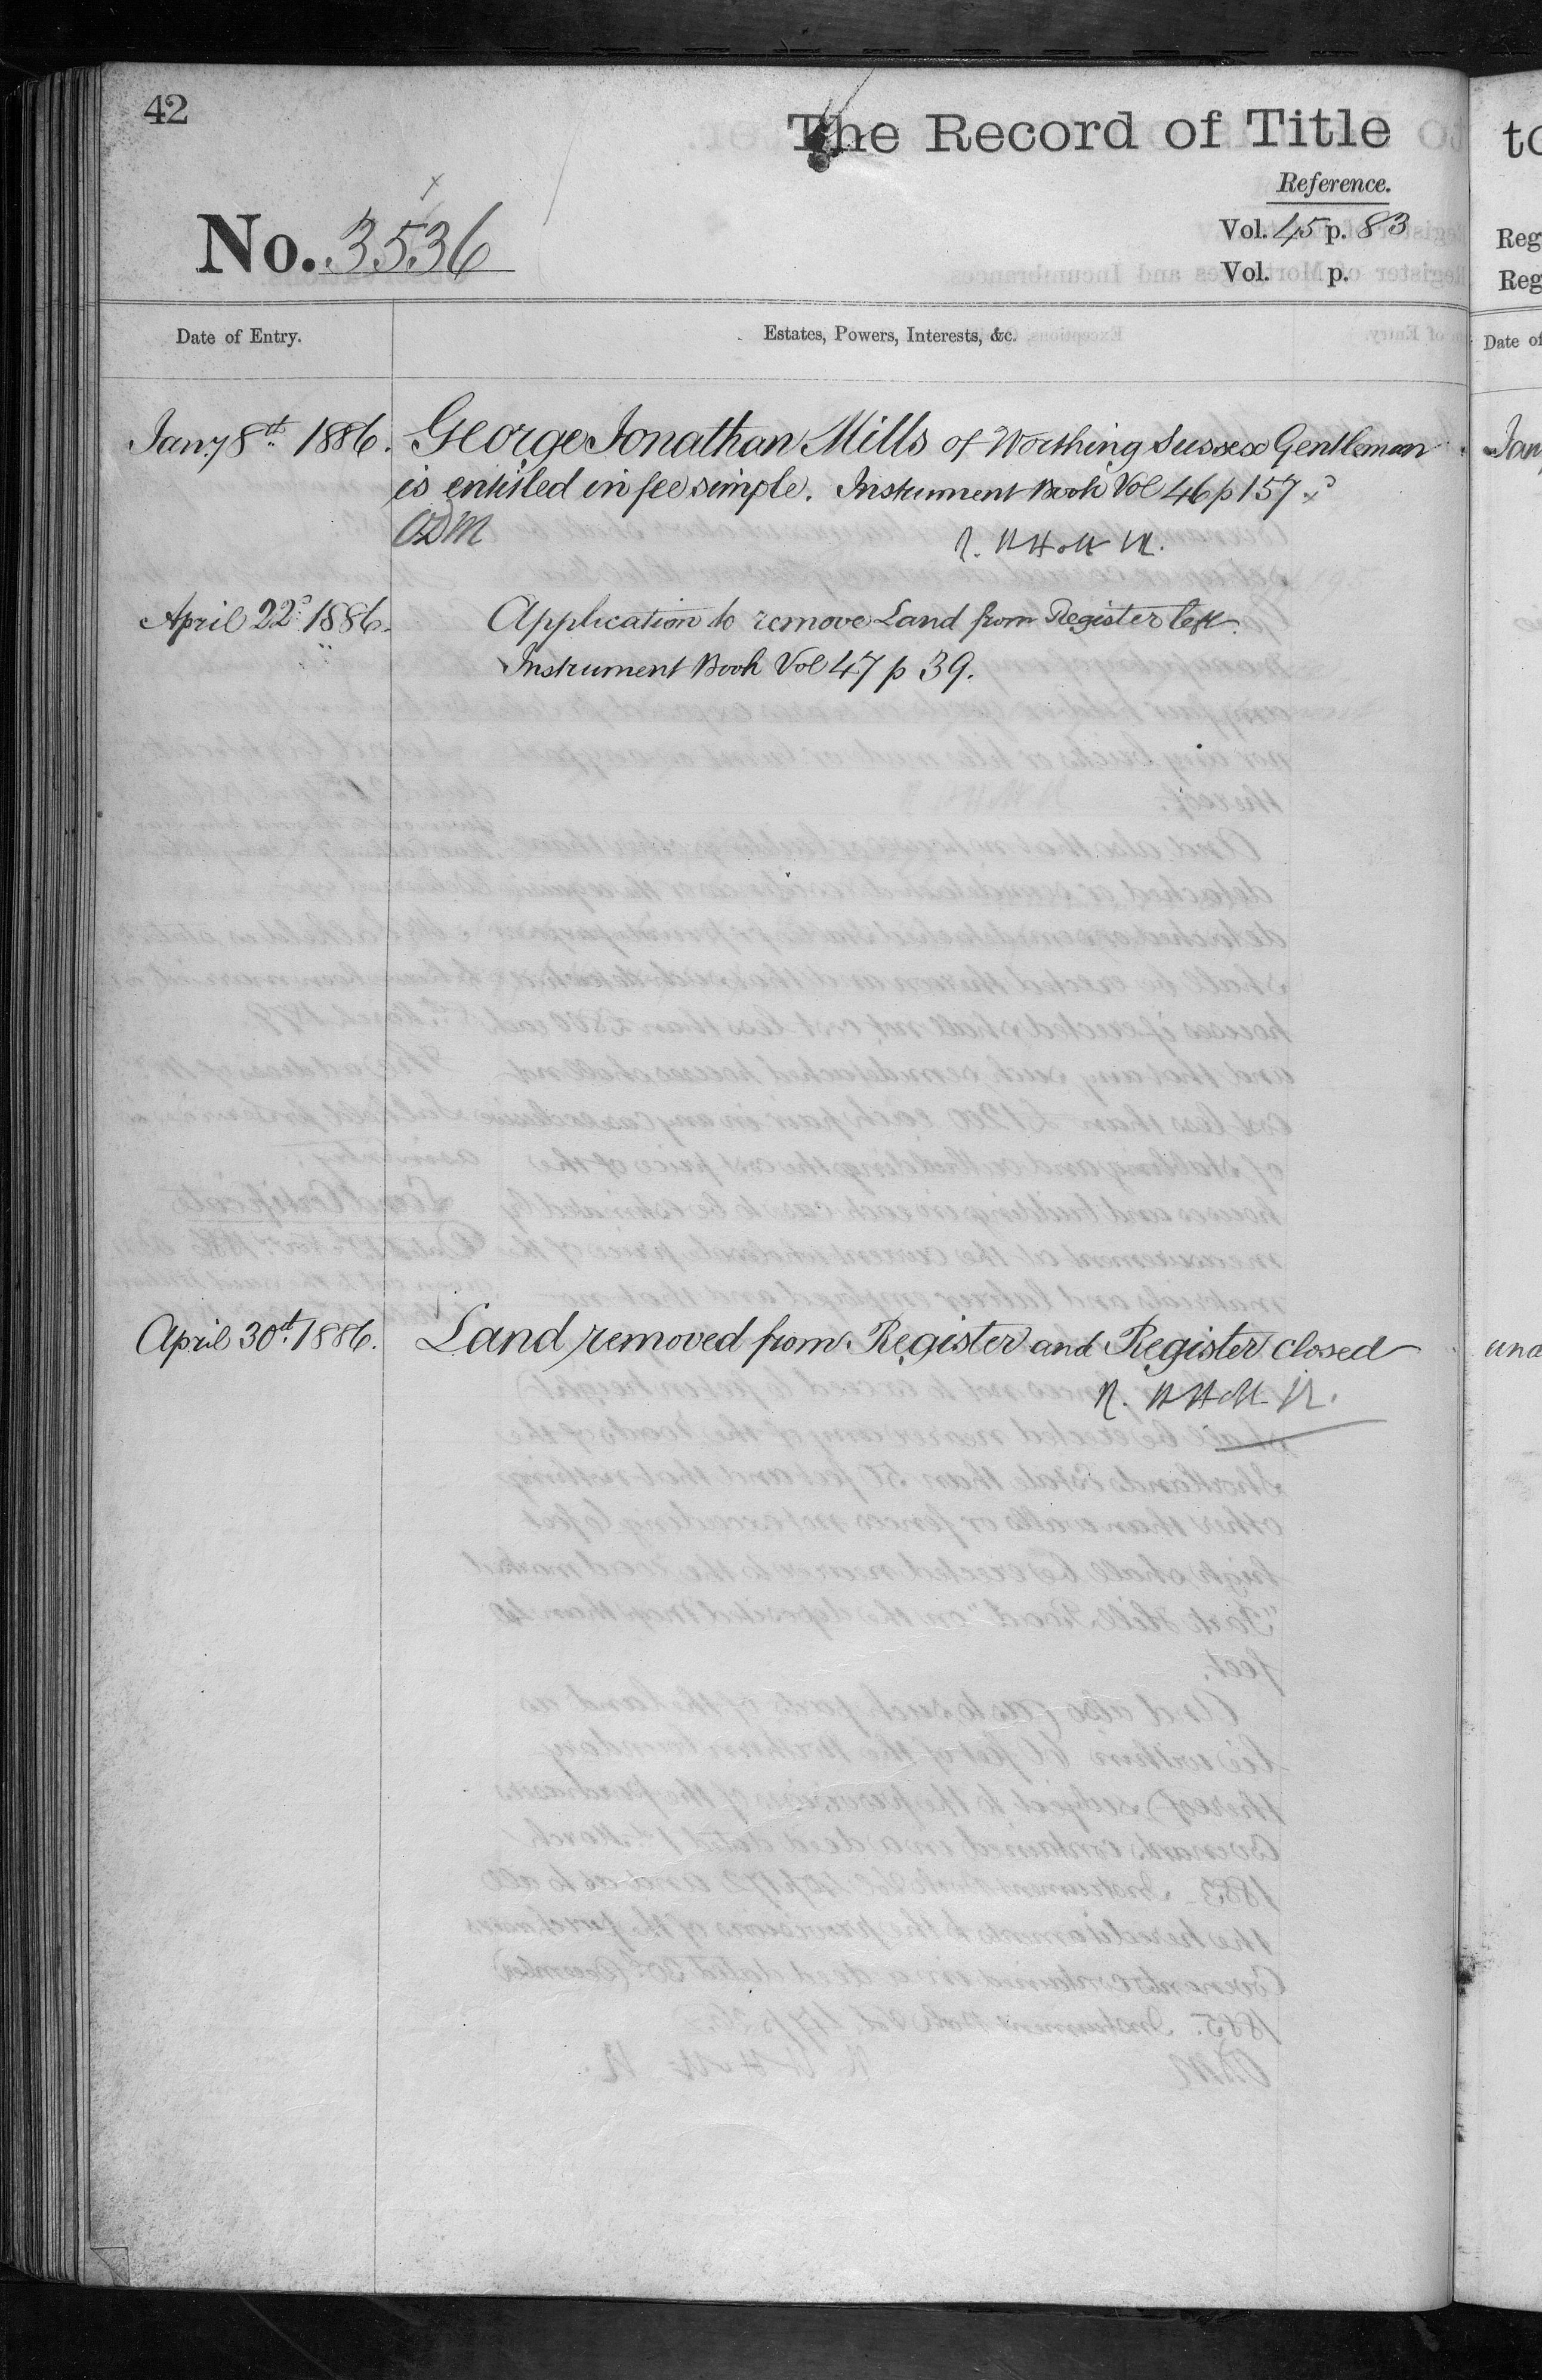 42
The Record of Title
Reference.
No. 3536
Vol. 45 p. 83
Vol. p.
Date of Entry.
Estates, Powers, Interests, &c.
Jany 8th 1886.
George Jonathan Mills of Worthing Sussex Gentleman
is entitled in fee simple. Instrument Book Vol 46 p 157
April 22d 1886.
Application to remove Land from Register left.
Instrument Book Vol 47 p 39.
April 30th 1886.
Land removed from Register and Register closed
to
Reg
Reg
Date of
Jan
and